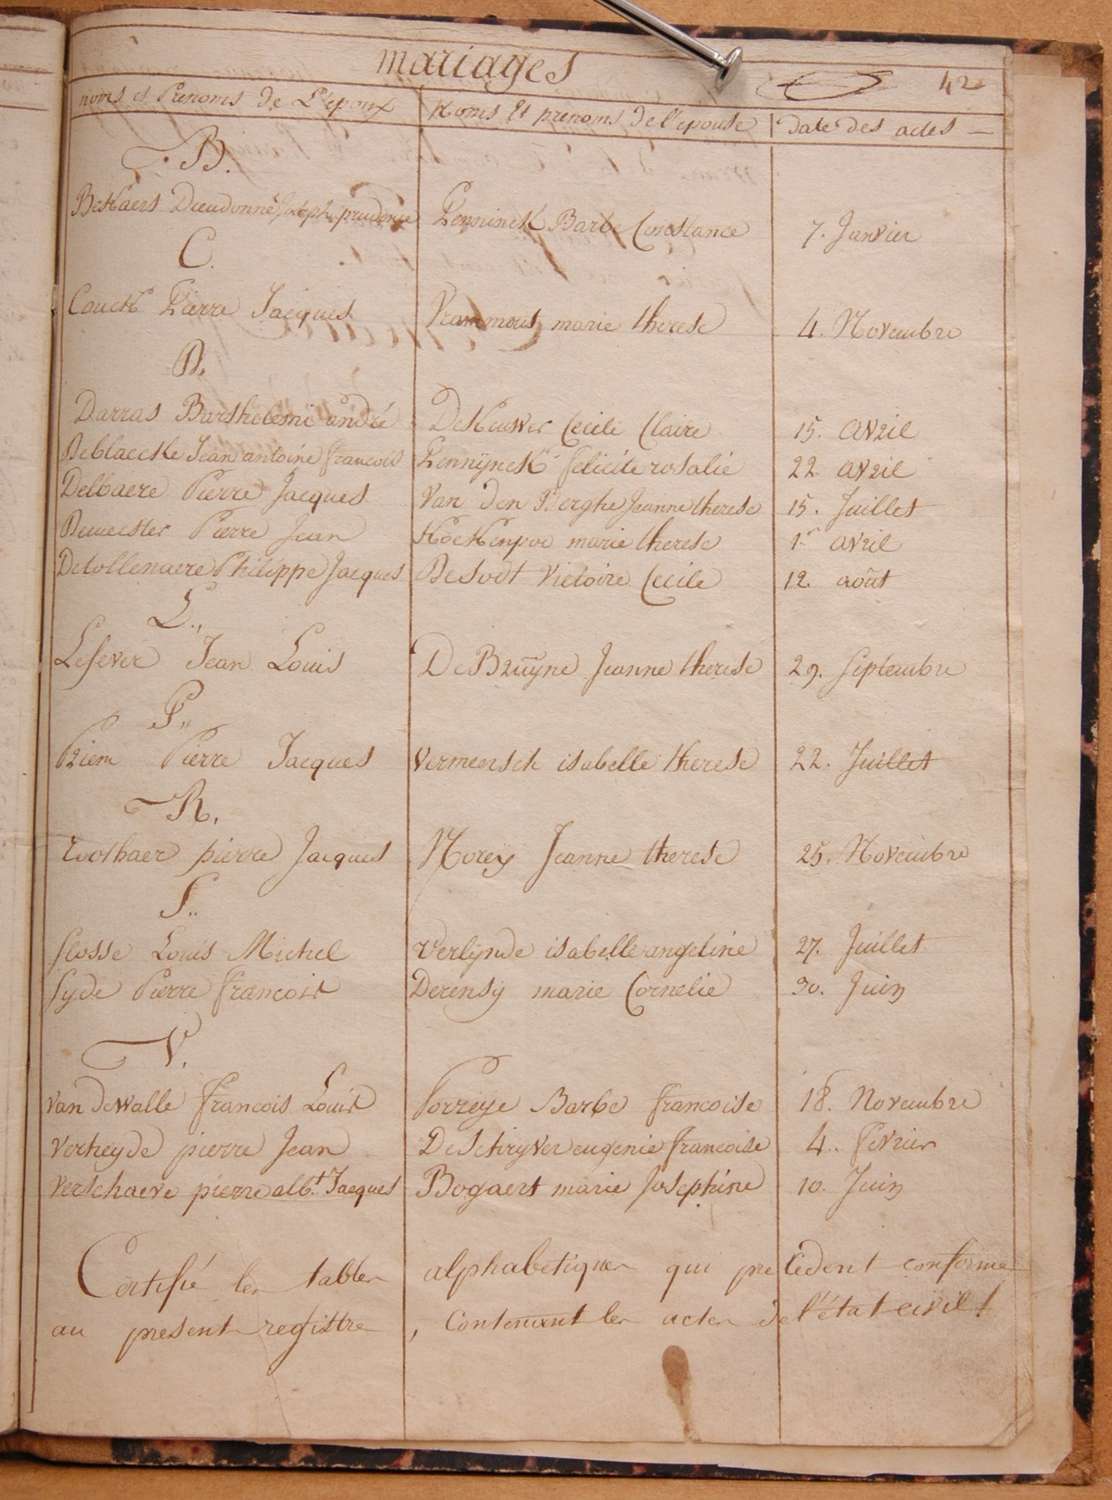 mariages
42
noms et Prenoms de L'epoux Noms Et prenoms de l'epouse date des actes
B.
Bekaert Dieudonné Joseph prudence Lenninck Barbe Constance 7. Janvier
C.
Couck Pierre Jacques marie therese 4. Novembre
D.
Darras Barthelemi andré DeKeuwer Cecile Claire 15. avril
Deblaecke Jean antoine francois Lennÿnck felicite rosalie 22 avril
Delbaere Pierre Jacques Van den Berghe Jeanne therese 15. Juillet
Demeester Pierre Jean marie therese 1.r avril
Detollenaere Philippe Jacques Desodt Victoire Cecile 12. août
L.,
Lefever Jean Louis De Bruÿne Jeanne therese 29. Septembre
P.,
Priem Pierre Jacques Vermeersch isabelle therese 22. Juillet
R.
Roothaer pierre Jacques Morey Jeanne therese 25. Novembre
S..
Slosse Louis Michel Verlÿnde isabelle angeline 27. Juillet
Syde Pierre francois Derensy marie Cornelie 30. Juin
V.
Van dewalle francois Louis Porreye Barbe francoise 18. Novembre
Verheyde pierre Jean DeSchryver eugenie francoise 4.. fevrier
Verschaeve pierre alb.t Jacques Bogaert marie Josephine 10. Juin
Certifié les tables alphabetiques qui precedent conforme
au present registre, contenant les actes de l'état civil